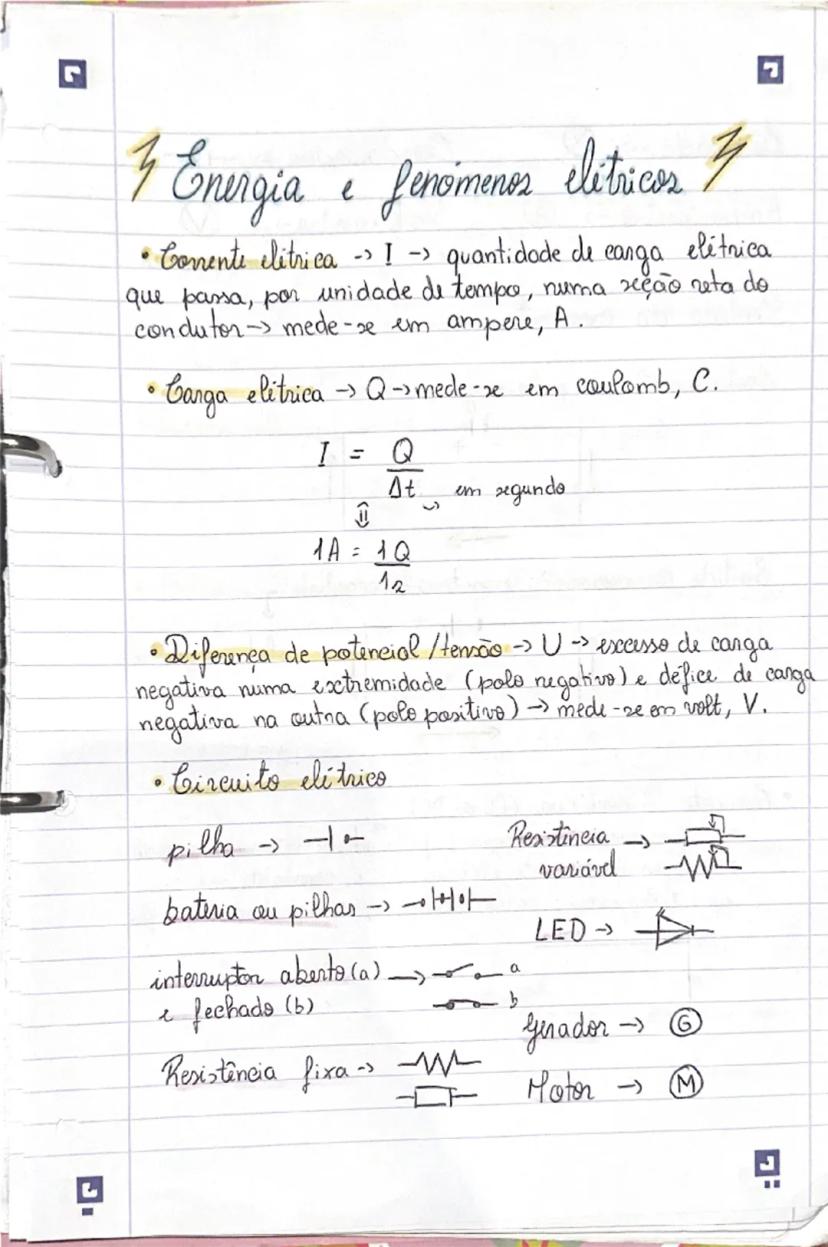 Energia e fenómenos elétricos
• Corrente elétrica -> I -> quantidade de carga elétrica
que passa, por unidade de tempo, numa secção reta do
condutor -> mede-se em ampere, A.
• Carga elétrica -> Q -> mede-se em coulomb, C.
I = Q
Δt em segundo
⇕
1A = 1Q
1s
• Diferença de potencial / tensão -> U -> excesso de carga
negativa numa extremidade (polo negativo) e défice de carga
negativa na outra (polo positivo) -> mede-se em volt, V.
• Circuito elétrico
pilha ->
bateria ou pilhas ->
interruptor aberto (a) -> a
e fechado (b) b
Resistência fixa ->
Resistência ->
variável
LED ->
Gerador -> G
Motor -> M